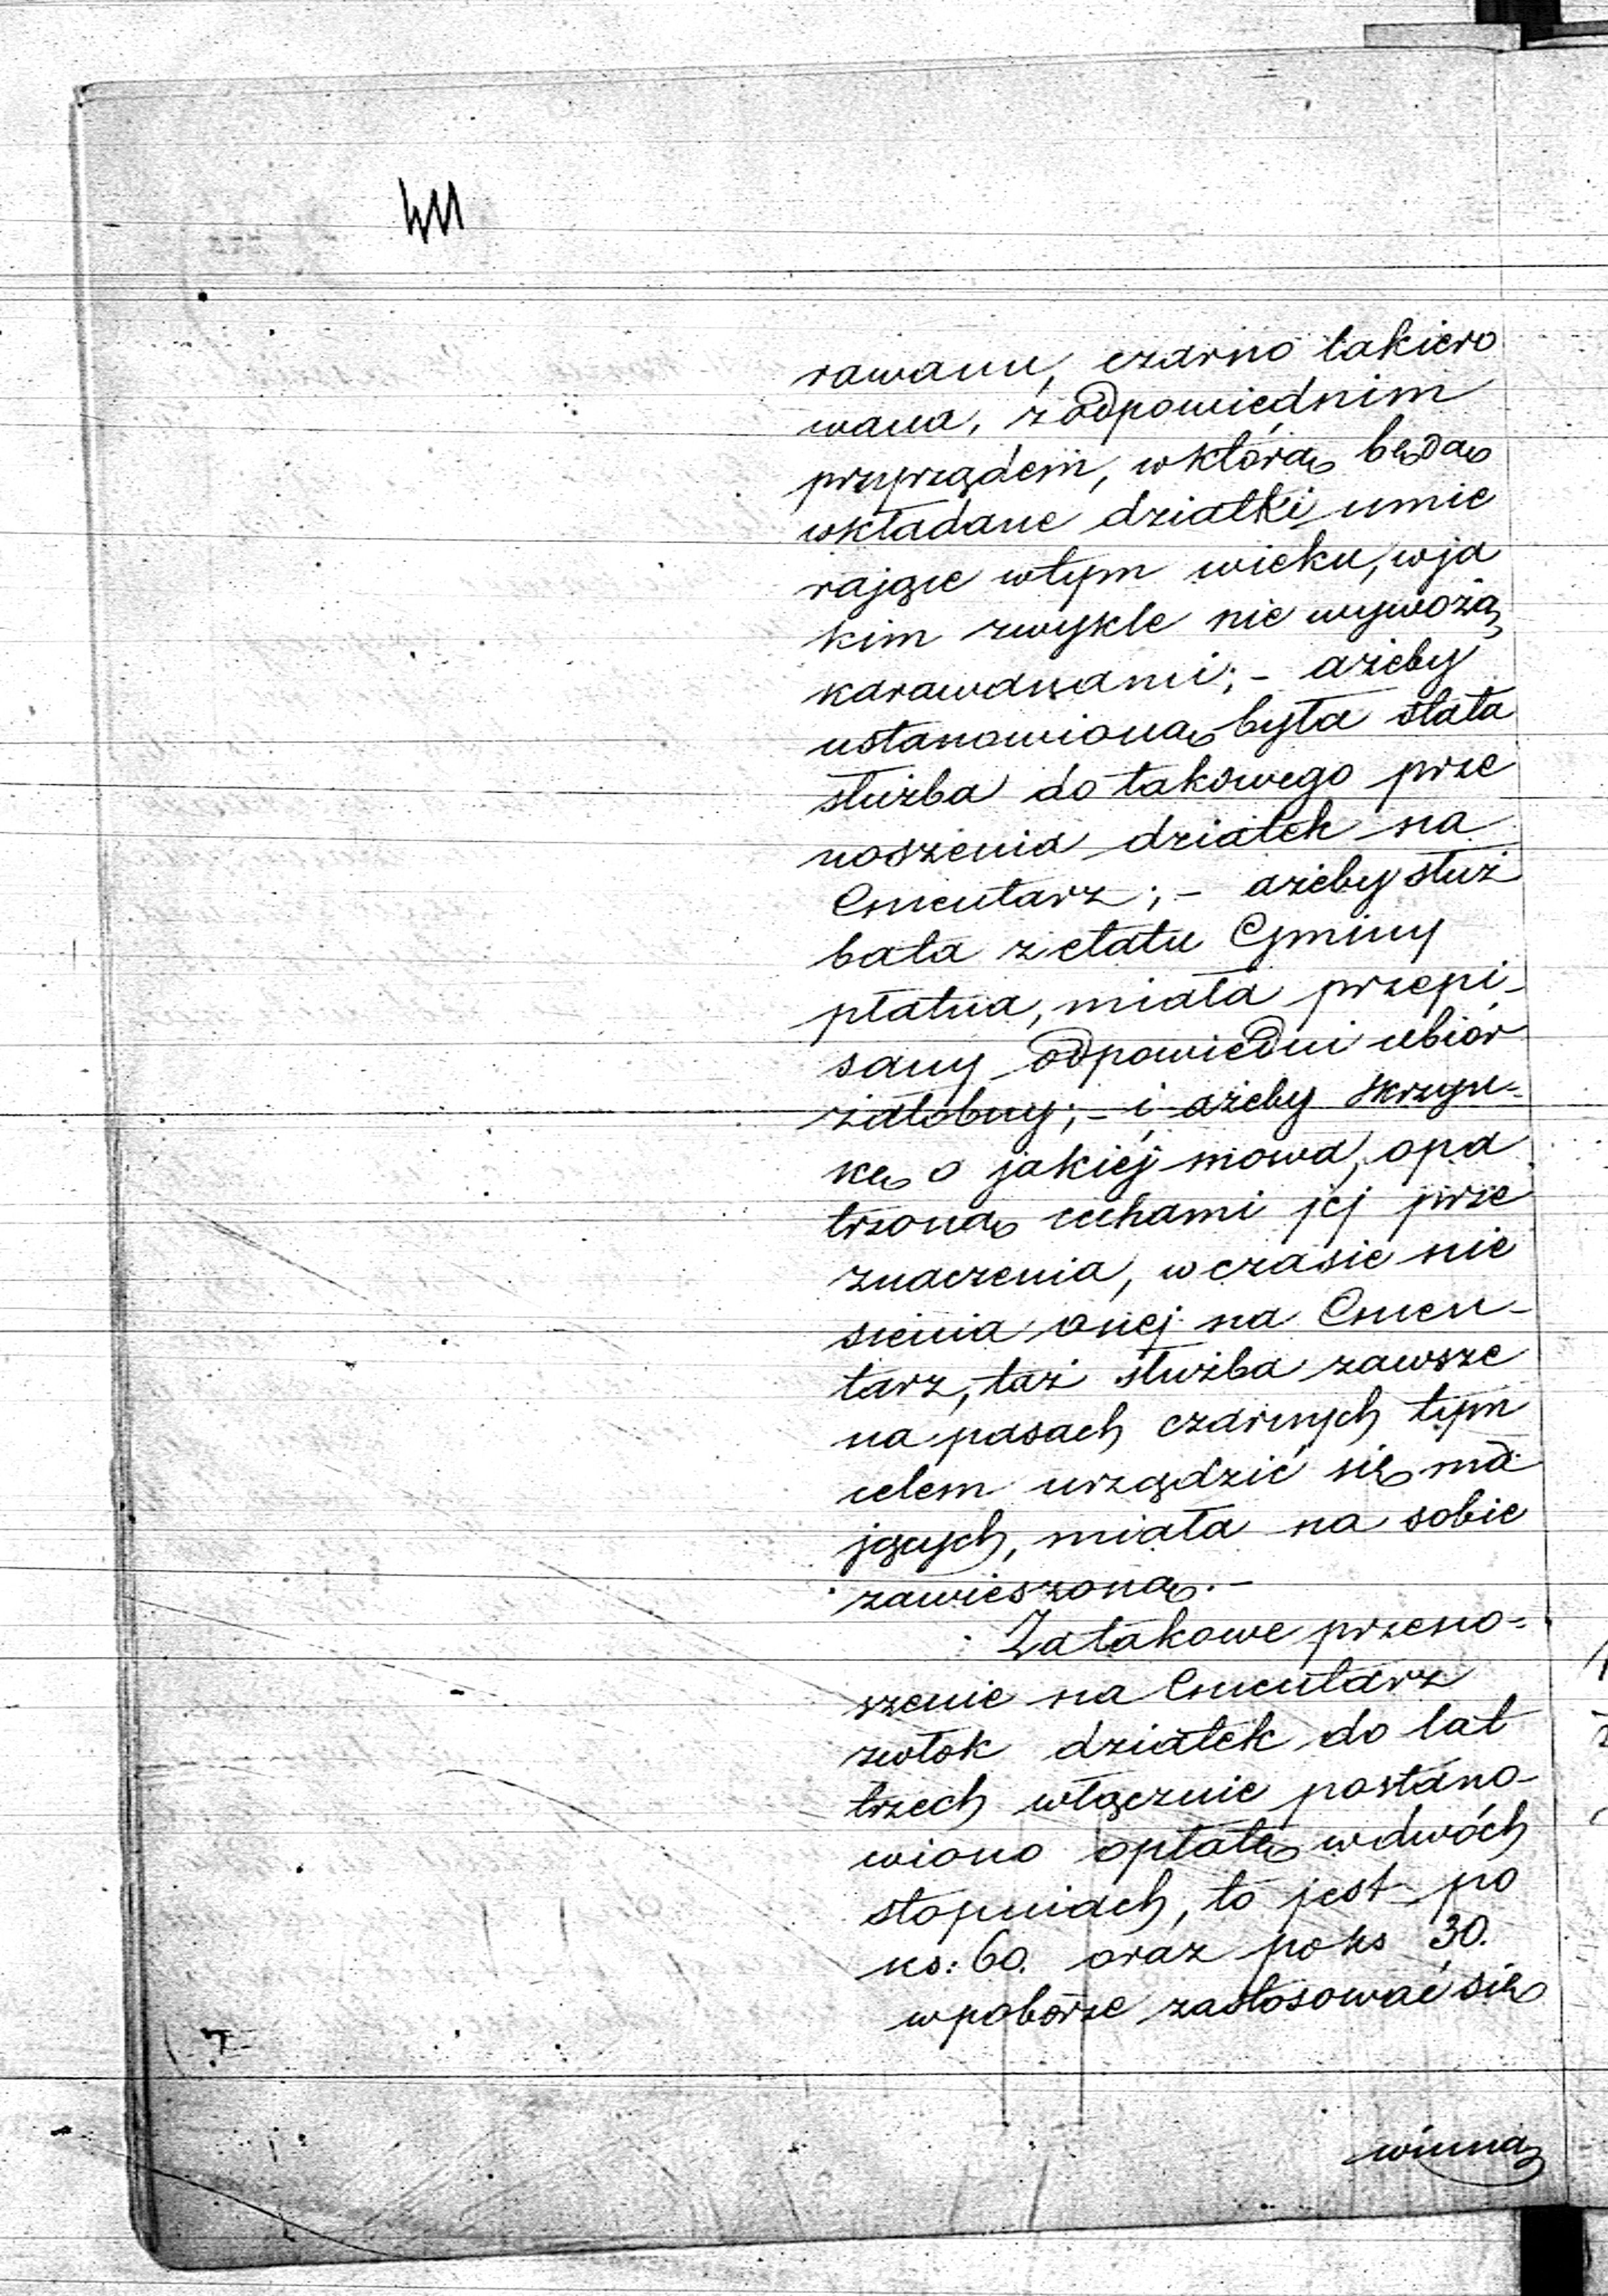 rawanu, czarno lakiero
wana, z odpowiednim
przyrządem, w którą będą
wkładane dziatki umie
rające w tym wieku, w ja
kim zwykle nie wywożą
karawanami; - ażeby
ustanowioną była stała
służba do takowego prze
noszenia dziatek na
Cmentarz; - ażeby służ
bała z etatu Gminy
płatna, miała przepi-
sany odpowiedni ubiór
żałobny; - i ażeby skrzyn-
kę o jakiéj mowa, opa
trzoną cechami jej prze
znaczenia, w czasie nie
sienia onej na Cmen-
tarz, taż służba zawsze
na pasach czarnych tym
celem urządzić się ma-
jących, miała na sobie
zawieszoną. -
Za takowe przeno-
szenie na Cmentarz
zwłok dziatek do lat
trzech włącznie postano-
wiono opłatę w dwóch
stopniach, to jest po
ks: 60. oraz po ks 30.
w poborze zastosować się
winną